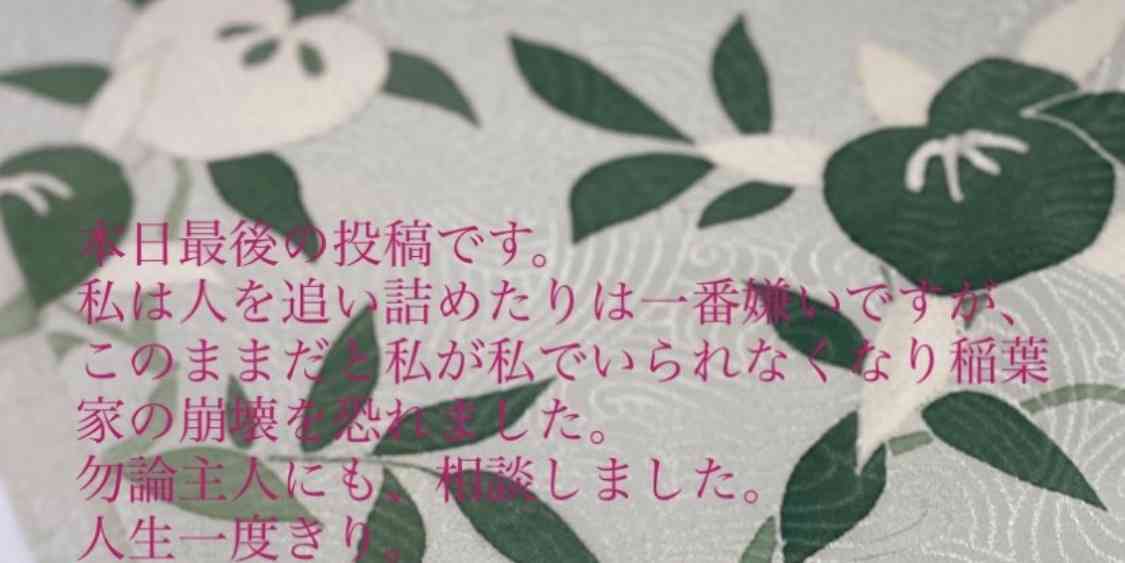 本日最後の投稿です。
私は人を追い詰めたりは一番嫌いですが、
このままだと私が私でいられなくなり稲葉
家の崩壊を恐れました。
勿論主人にも、相談しました。
人生一度きり。